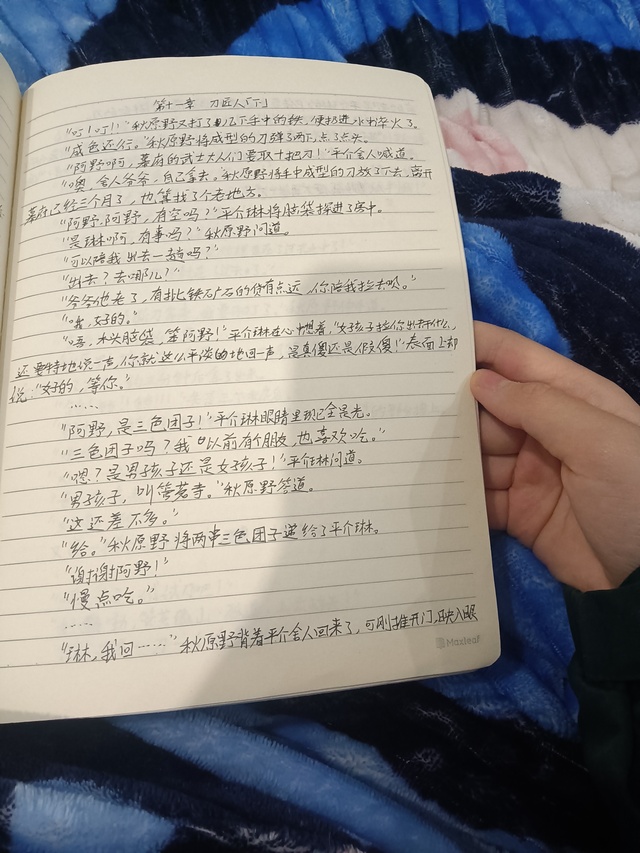 第十一章 刀匠人「下」
“叮！叮！”秋原野又打了几下手中的铁，便扔进水中淬火了。
“成色还行。”秋原野将成型的刀弹了两下，点了点头。
“阿野啊，幕府的武士大人们要取十把刀！”平介舍人喊道。
“噢，舍人爷爷，自己拿去。”秋原野将手中成型的刀放了下去，离开
幕府已经三个月了，也算找了个老地方。
“阿野，阿野，有空吗？”平介琳将脑袋探进了房中。
“是琳啊，有事吗？”秋原野问道。
“可以陪我出去一趟吗？”
“出去？去哪儿？”
“爷爷他老了，有批铁矿石的货有点远，你陪我拉去呗。”
“哦，好的。”
“唔，木头脑袋，笨阿野！”平介琳在心中想着，“女孩子拉你出去干什么，
还要特地说一声，你就这么平淡的地回一声，是真傻还是假傻！”表面上却
说：“好的，等你。”
……
“阿野，是三色团子！”平介琳眼睛里现已全是光。
“三色团子吗？我以前有个朋友，也喜欢吃。”
“嗯？是男孩子还是女孩子！”平介琳问道。
“男孩子，叫菅若寺。”秋原野答道。
“这还差不多。”
“给。”秋原野将两串三色团子递给了平介琳。
“谢谢阿野！”
“慢点吃。”
……
“琳，我回……”秋原野背着平介舍人回来了，可刚推开门，映入眼
Maxleaf